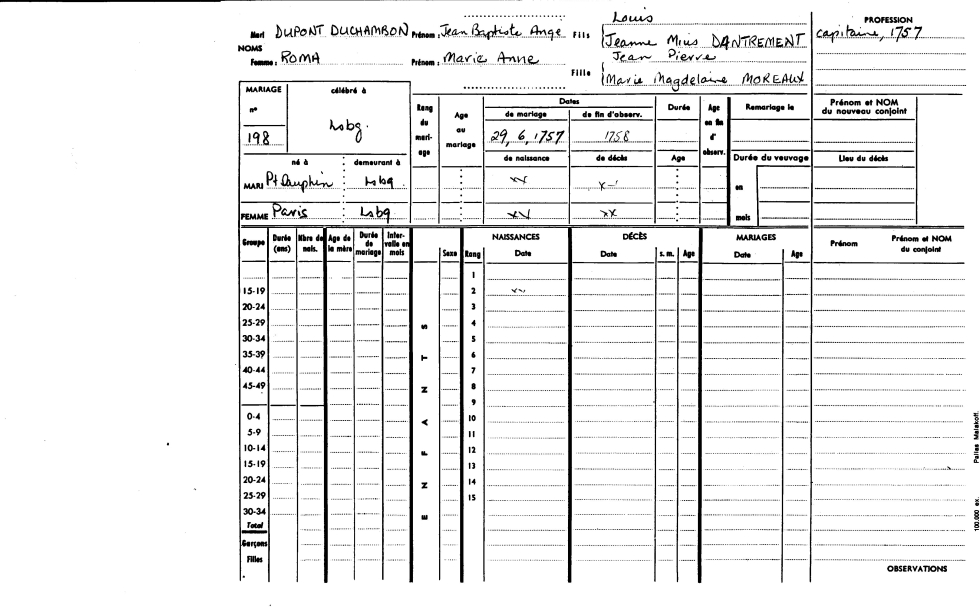 Louis
PROFESSION
Mari DUPONT DUCHAMBON Prénom : Jean Baptiste Ange Fils Jeanne Mius DANTREMENT capitaine, 1757
NOMS
Femme : ROMA Prénom : Marie Anne Jean Pierre
Fille Marie Magdelaine MOREAUX
MARIAGE célébré à Rang du mari-age Age au mariage Dates Durée Age en fin d' observ. Remariage le Prénom et NOM du nouveau conjoint
n° de mariage de fin d'observ.
198 Lsbg. 29, 6, 1757 1758
né à demeurant à de naissance de décès Age Durée du veuvage Lieu du décès
MARI Pt Dauphin Lsbg. en
FEMME Paris Lsbg xx mois
Groupe Durée (ans) Nbre de nais. Age de la mère Durée de mariage Inter-valle en mois Sexe Rang NAISSANCES Date DÉCÈS Date s. m. Age MARIAGES Date Age Prénom Prénom et NOM du conjoint
1
15-19 2
20-24 3
25-29 4
30-34 5
35-39 6
40-44 7
45-49 8
9
0-4 10
5-9 11
10-14 12
15-19 13
20-24 14
25-29 15
30-34
Total
Garçons
Filles
ENFANTS
OBSERVATIONS
100.000 ex. Pallas Malakoff.